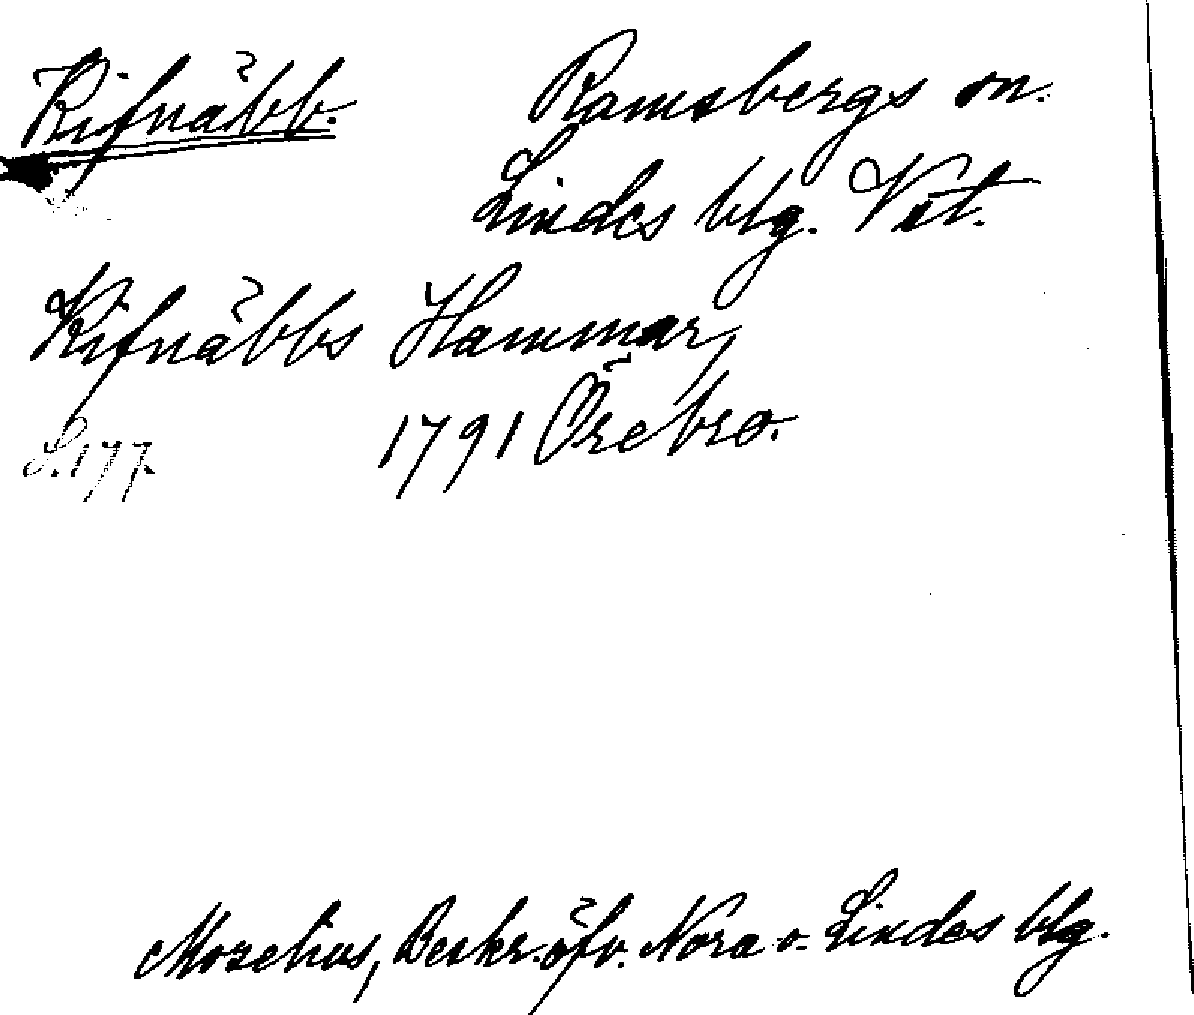 Kifnäbb. Ramsbergs sn.
Lindes blg. Vst.
Kifnäbbs Hammar,
S. 177. 1791 Örebro.
Moxelius, Beskr. öfv. Nora o. Lindes blg.